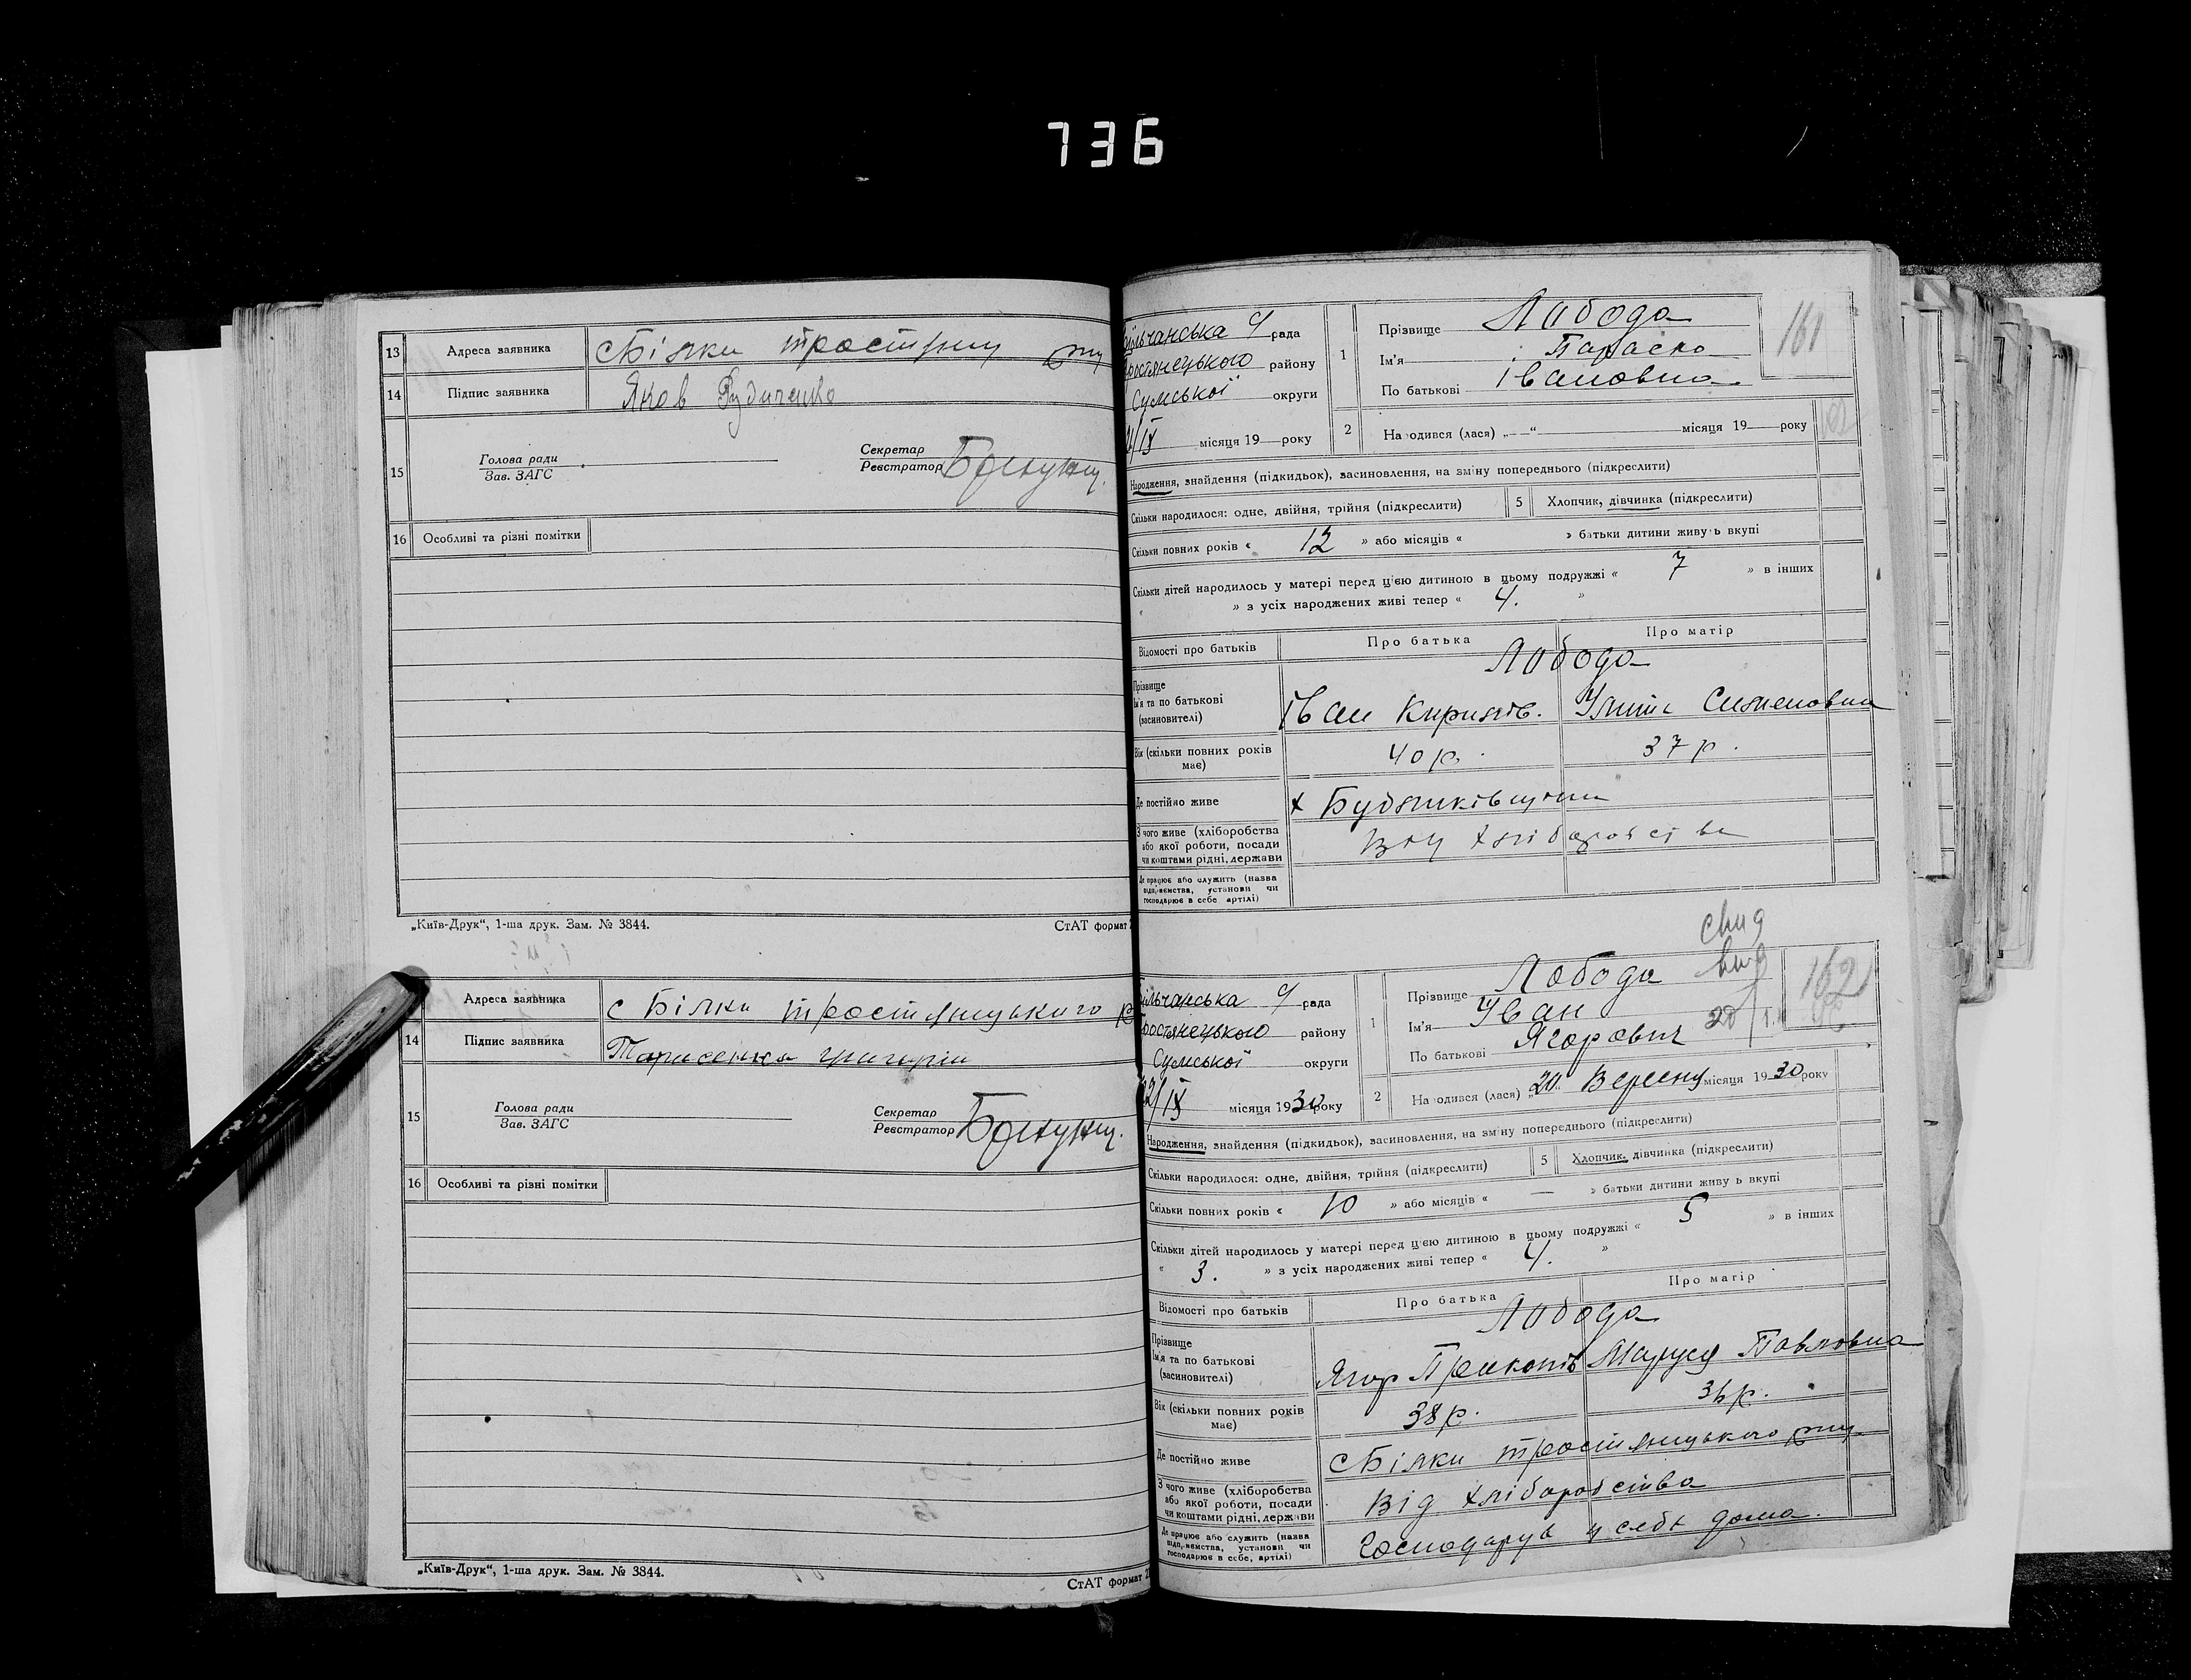 736
13 Адреса заявника с Білки
14 Підпис заявника Яков Рудиченко
15 Голова ради Зав. ЗАГС Секретар Реєстратор
16 Особливі та різні помітки
„Київ-Друк“, 1-ша друк. Зам. № 3844. СтАТ формат
Адреса заявника с Білки Тростянецького р
14 Підпис заявника Тарисенко Григорій
15 Голова ради Зав. ЗАГС Секретар Реєстратор
16 Особливі та різні помітки
„Київ-Друк“, 1-ша друк. Зам. № 3844. СтАТ формат
рада
Тростянецького району
Сумської округи
/IX місяця 19 року
1 Прізвище Лобода
Ім'я Параска
По батькові Івановна
161
2 Народився (лася) „—“ місяця 19 року
Народження, знайдення (підкидьок), засиновлення, на зміну попереднього (підкреслити)
Скільки народилося: одне, двійня, трійня (підкреслити) 5 Хлопчик, дівчинка (підкреслити)
Скільки повних років « 12 » або місяців « » батьки дитини живуть вкупі
Скільки дітей народилось у матері перед цією дитиною в цьому подружжі « 7 » в інших
« » з усіх народжених живі тепер « 4. »
Відомості про батьків Про батька Про матір
Лобода
Прізвище
Ім'я та по батькові
(засиновителі)
Іван Кирилів. Улита Семеновна
Вік (скільки повних років має) 40 р. 37 р.
Де постійно живе х
З чого живе (хліборобства або якої роботи, посади чи коштами рідні, держави від хліборобства
Де працює або служить (назва підприємства, установи чи господарює в себе артілі)
рада
Тростянецького району
Сумської округи
22/IX місяця 1930 року
1 Прізвище Лобода
Ім'я Іван
По батькові Ягорович
162
2 Народився (лася) „20“ Вересня місяця 1930 року
Народження, знайдення (підкидьок), засиновлення, на зміну попереднього (підкреслити)
Скільки народилося: одне, двійня, трійня (підкреслити) 5 Хлопчик, дівчинка (підкреслити)
Скільки повних років « 10 » або місяців « — » батьки дитини живуть вкупі
Скільки дітей народилось у матері перед цією дитиною в цьому подружжі « 5 » в інших
« 3. » з усіх народжених живі тепер « 4. »
Відомості про батьків Про батька Про матір
Лобода
Прізвище
Ім'я та по батькові
(засиновителі)
Ягор Прокопів Маруся Павловна
Вік (скільки повних років має) 38 р. 36 р.
Де постійно живе с Білки Тростянецького р-ну
З чого живе (хліборобства або якої роботи, посади чи коштами рідні, держави від хліборобства
Де працює або служить (назва підприємства, установи чи господарює в себе, артілі) Господарує у себе дома.